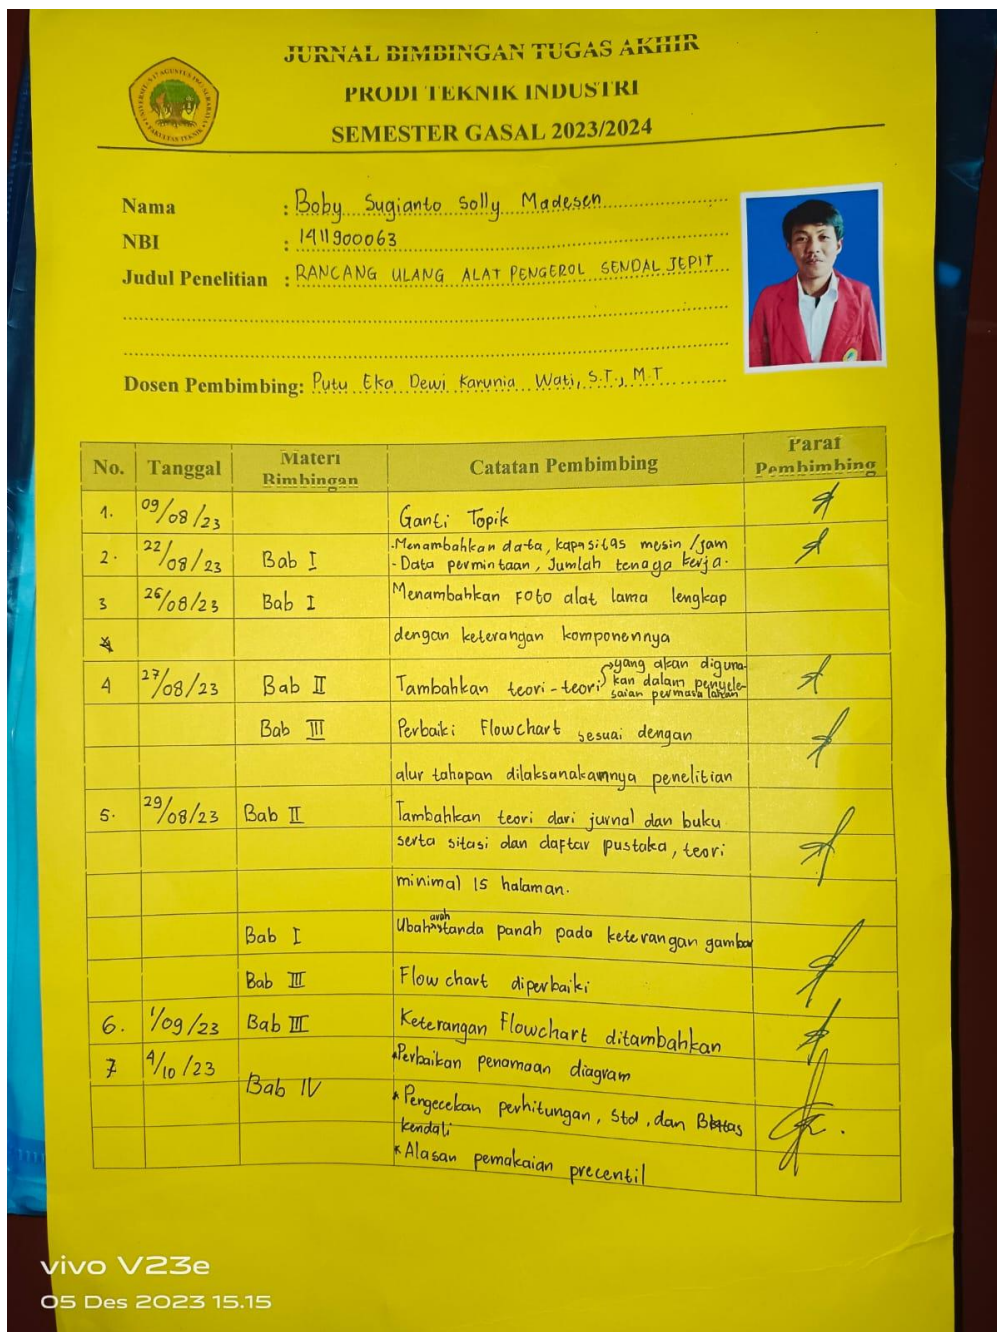 JURNAL BIMBINGAN TUGAS AKHIR
PRODI TEKNIK INDUSTRI
SEMESTER GASAL 2023/2024
Nama : Boby Sugianto Solly Madesen
NBI : 1411900063
Judul Penelitian : RANCANG ULANG ALAT PENGEROL SENDAL JEPIT
Dosen Pembimbing: Putu Eka Dewi Karunia Wati, S.T., M.T
No. Tanggal Materi Bimbingan Catatan Pembimbing Paraf Pembimbing
1. 09/08/23 Ganti Topik
2. 22/08/23 Bab I - Menambahkan data, kapasitas mesin /jam
- Data permintaan, Jumlah tenaga kerja.
3 26/08/23 Bab I Menambahkan Foto alat lama lengkap
dengan keterangan komponennya
4 27/08/23 Bab II Tambahkan teori-teori yang akan diguna-
kan dalam penyele-
saian permasalahan
Bab III Perbaiki Flowchart sesuai dengan
alur tahapan dilaksanakannya penelitian
5. 29/08/23 Bab II Tambahkan teori dari jurnal dan buku
serta sitasi dan daftar pustaka, teori
minimal 15 halaman.
Bab I Ubah arah tanda panah pada keterangan gambar
Bab III Flow chart diperbaiki
6. 1/09/23 Bab III Keterangan Flowchart ditambahkan
7 4/10/23 * Perbaikan penamaan diagram
Bab IV * Pengecekan perhitungan, Std, dan Batas
kendali
* Alasan pemakaian precentil
vivo V23e
05 Des 2023 15.15